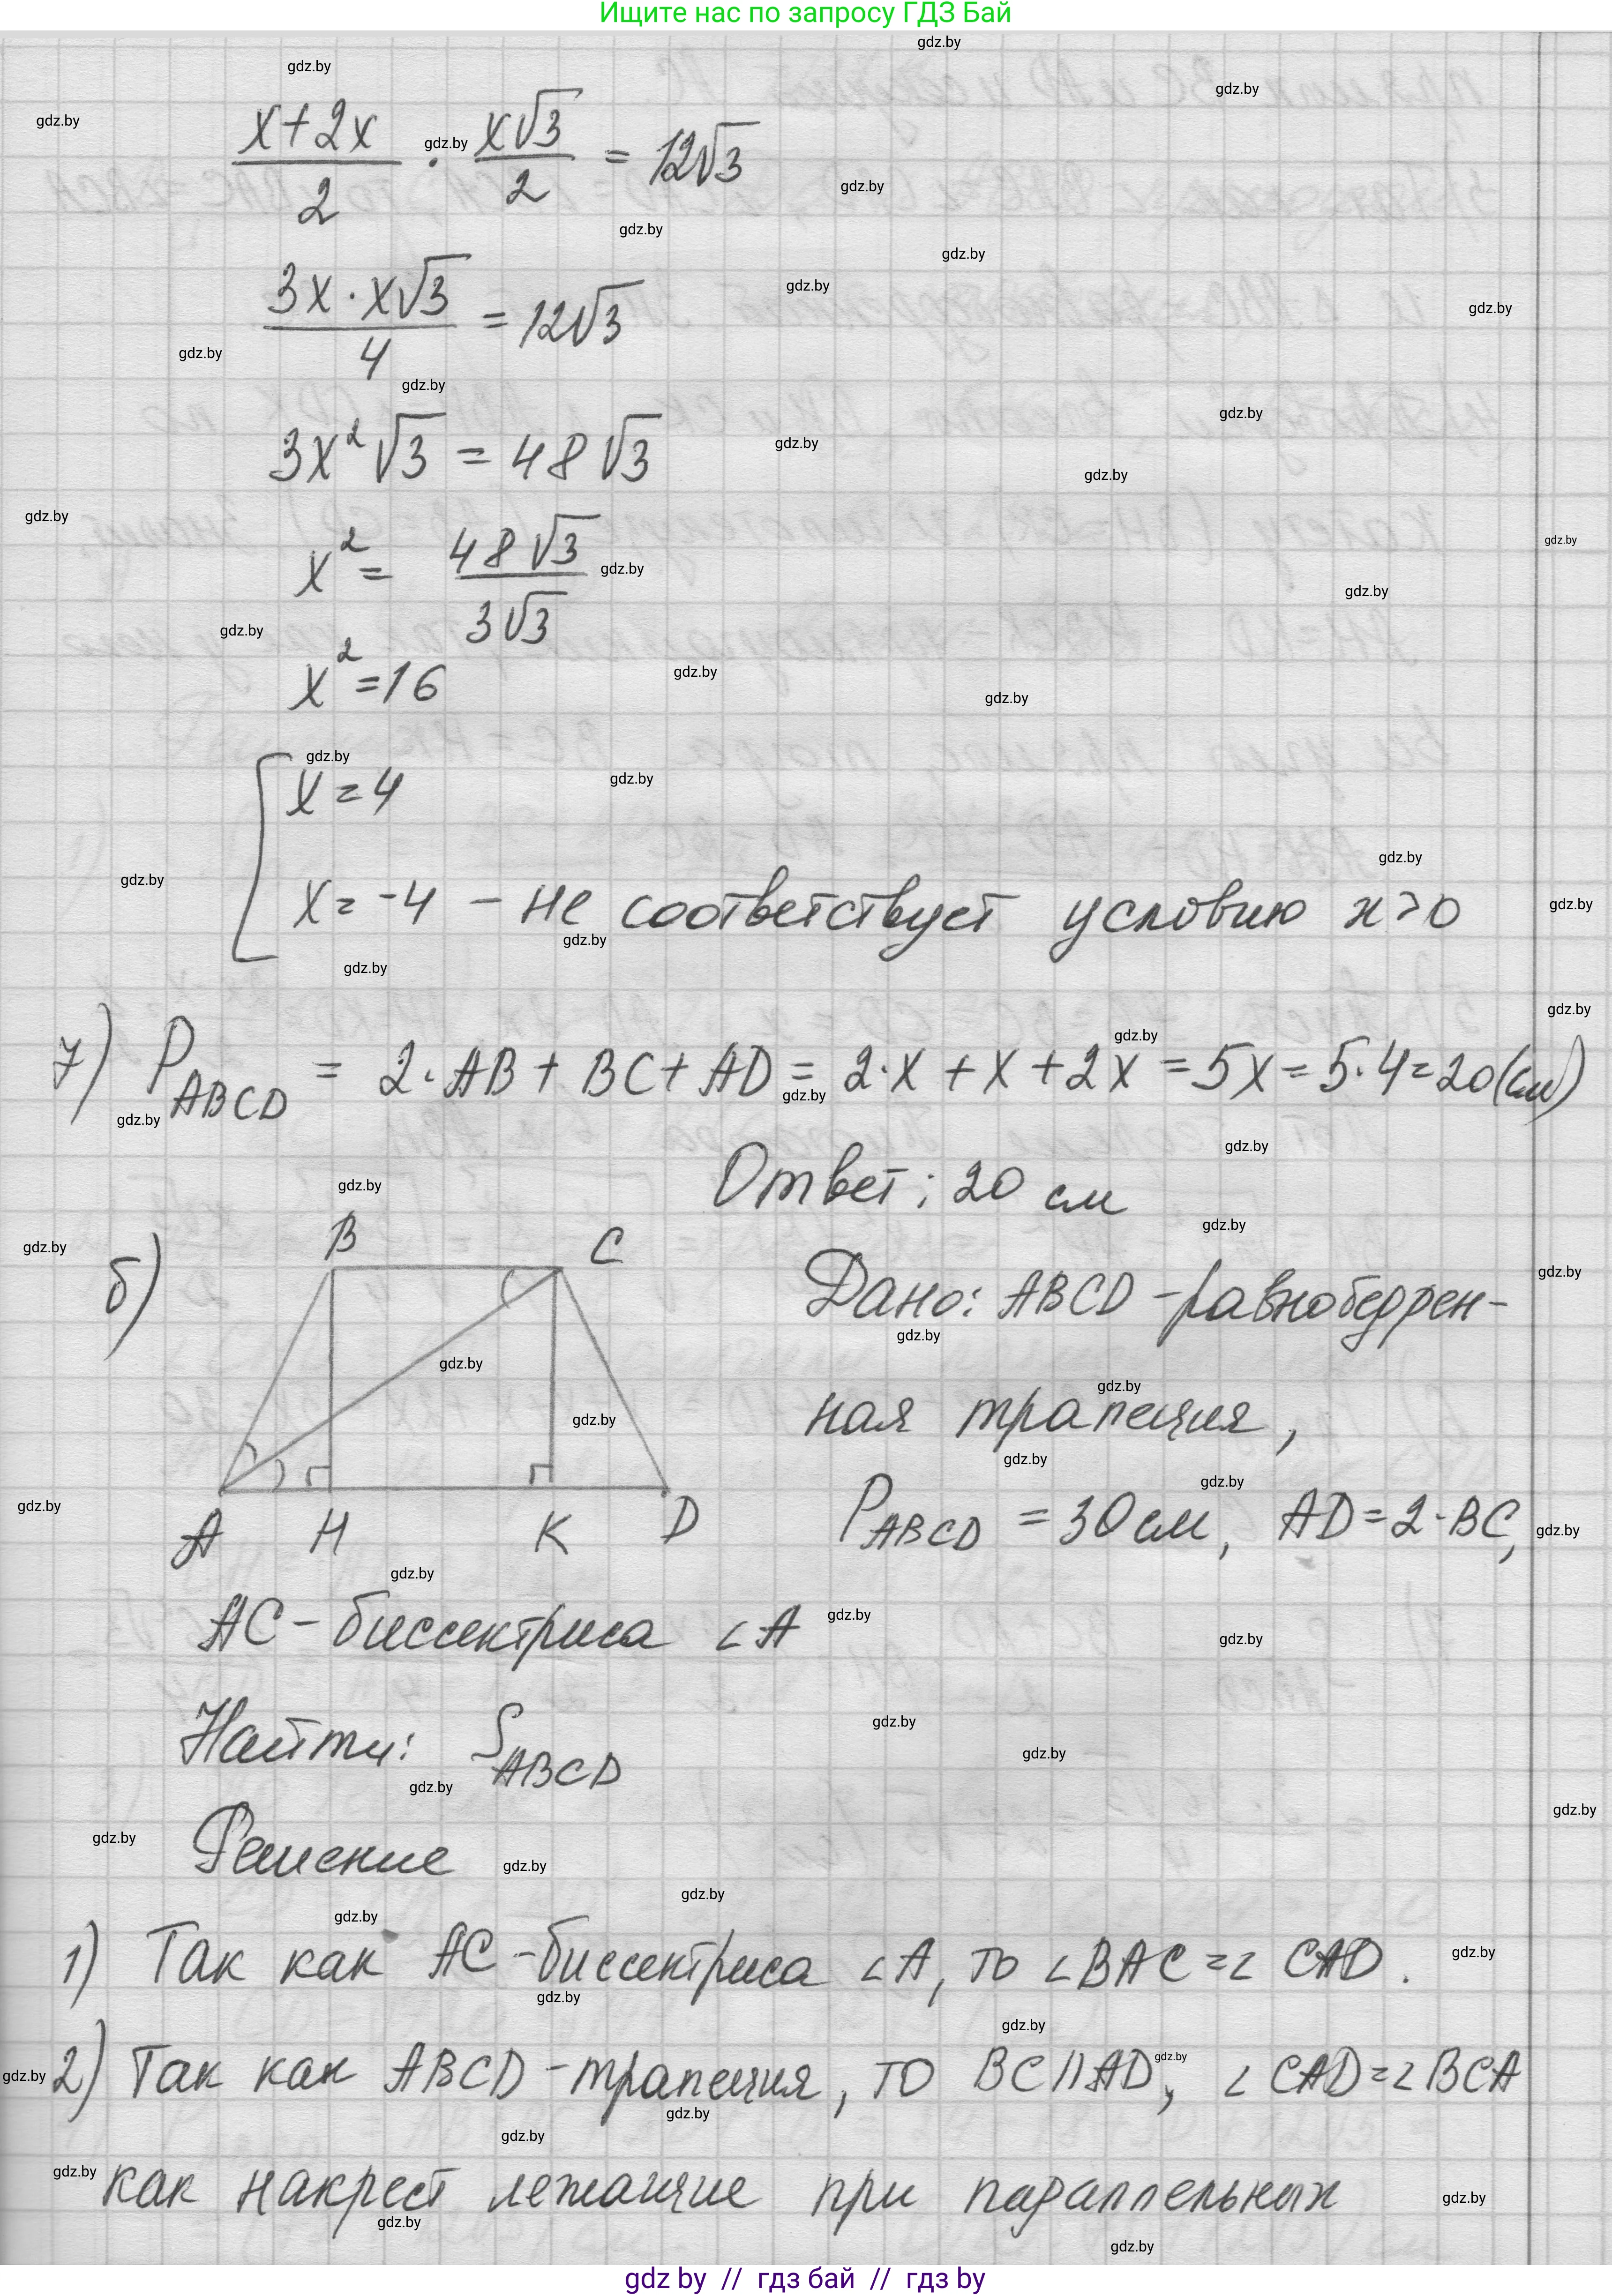 Ищите нас по запросу ГДЗ Бай
(x+2x)/2 · (x√3)/2 = 12√3
(3x · x√3)/4 = 12√3
3x²√3 = 48√3
x² = (48√3)/(3√3)
x² = 16
[ x = 4
x = -4 - не соответствует условию x > 0
7) P ABCD = 2·AB + BC + AD = 2·x + x + 2x = 5x = 5·4 = 20 (см)
Ответ: 20 см
б)
B C
A H K D
Дано: ABCD - равнобедрен-
ная трапеция,
P ABCD = 30 см, AD = 2·BC,
AC - биссектриса ∠A
Найти: S ABCD
Решение
1) Так как AC - биссектриса ∠A, то ∠BAC = ∠CAD.
2) Так как ABCD - трапеция, то BC || AD, ∠CAD = ∠BCA
как накрест лежащие при параллельных
gdz by // гдз бай // гдз by